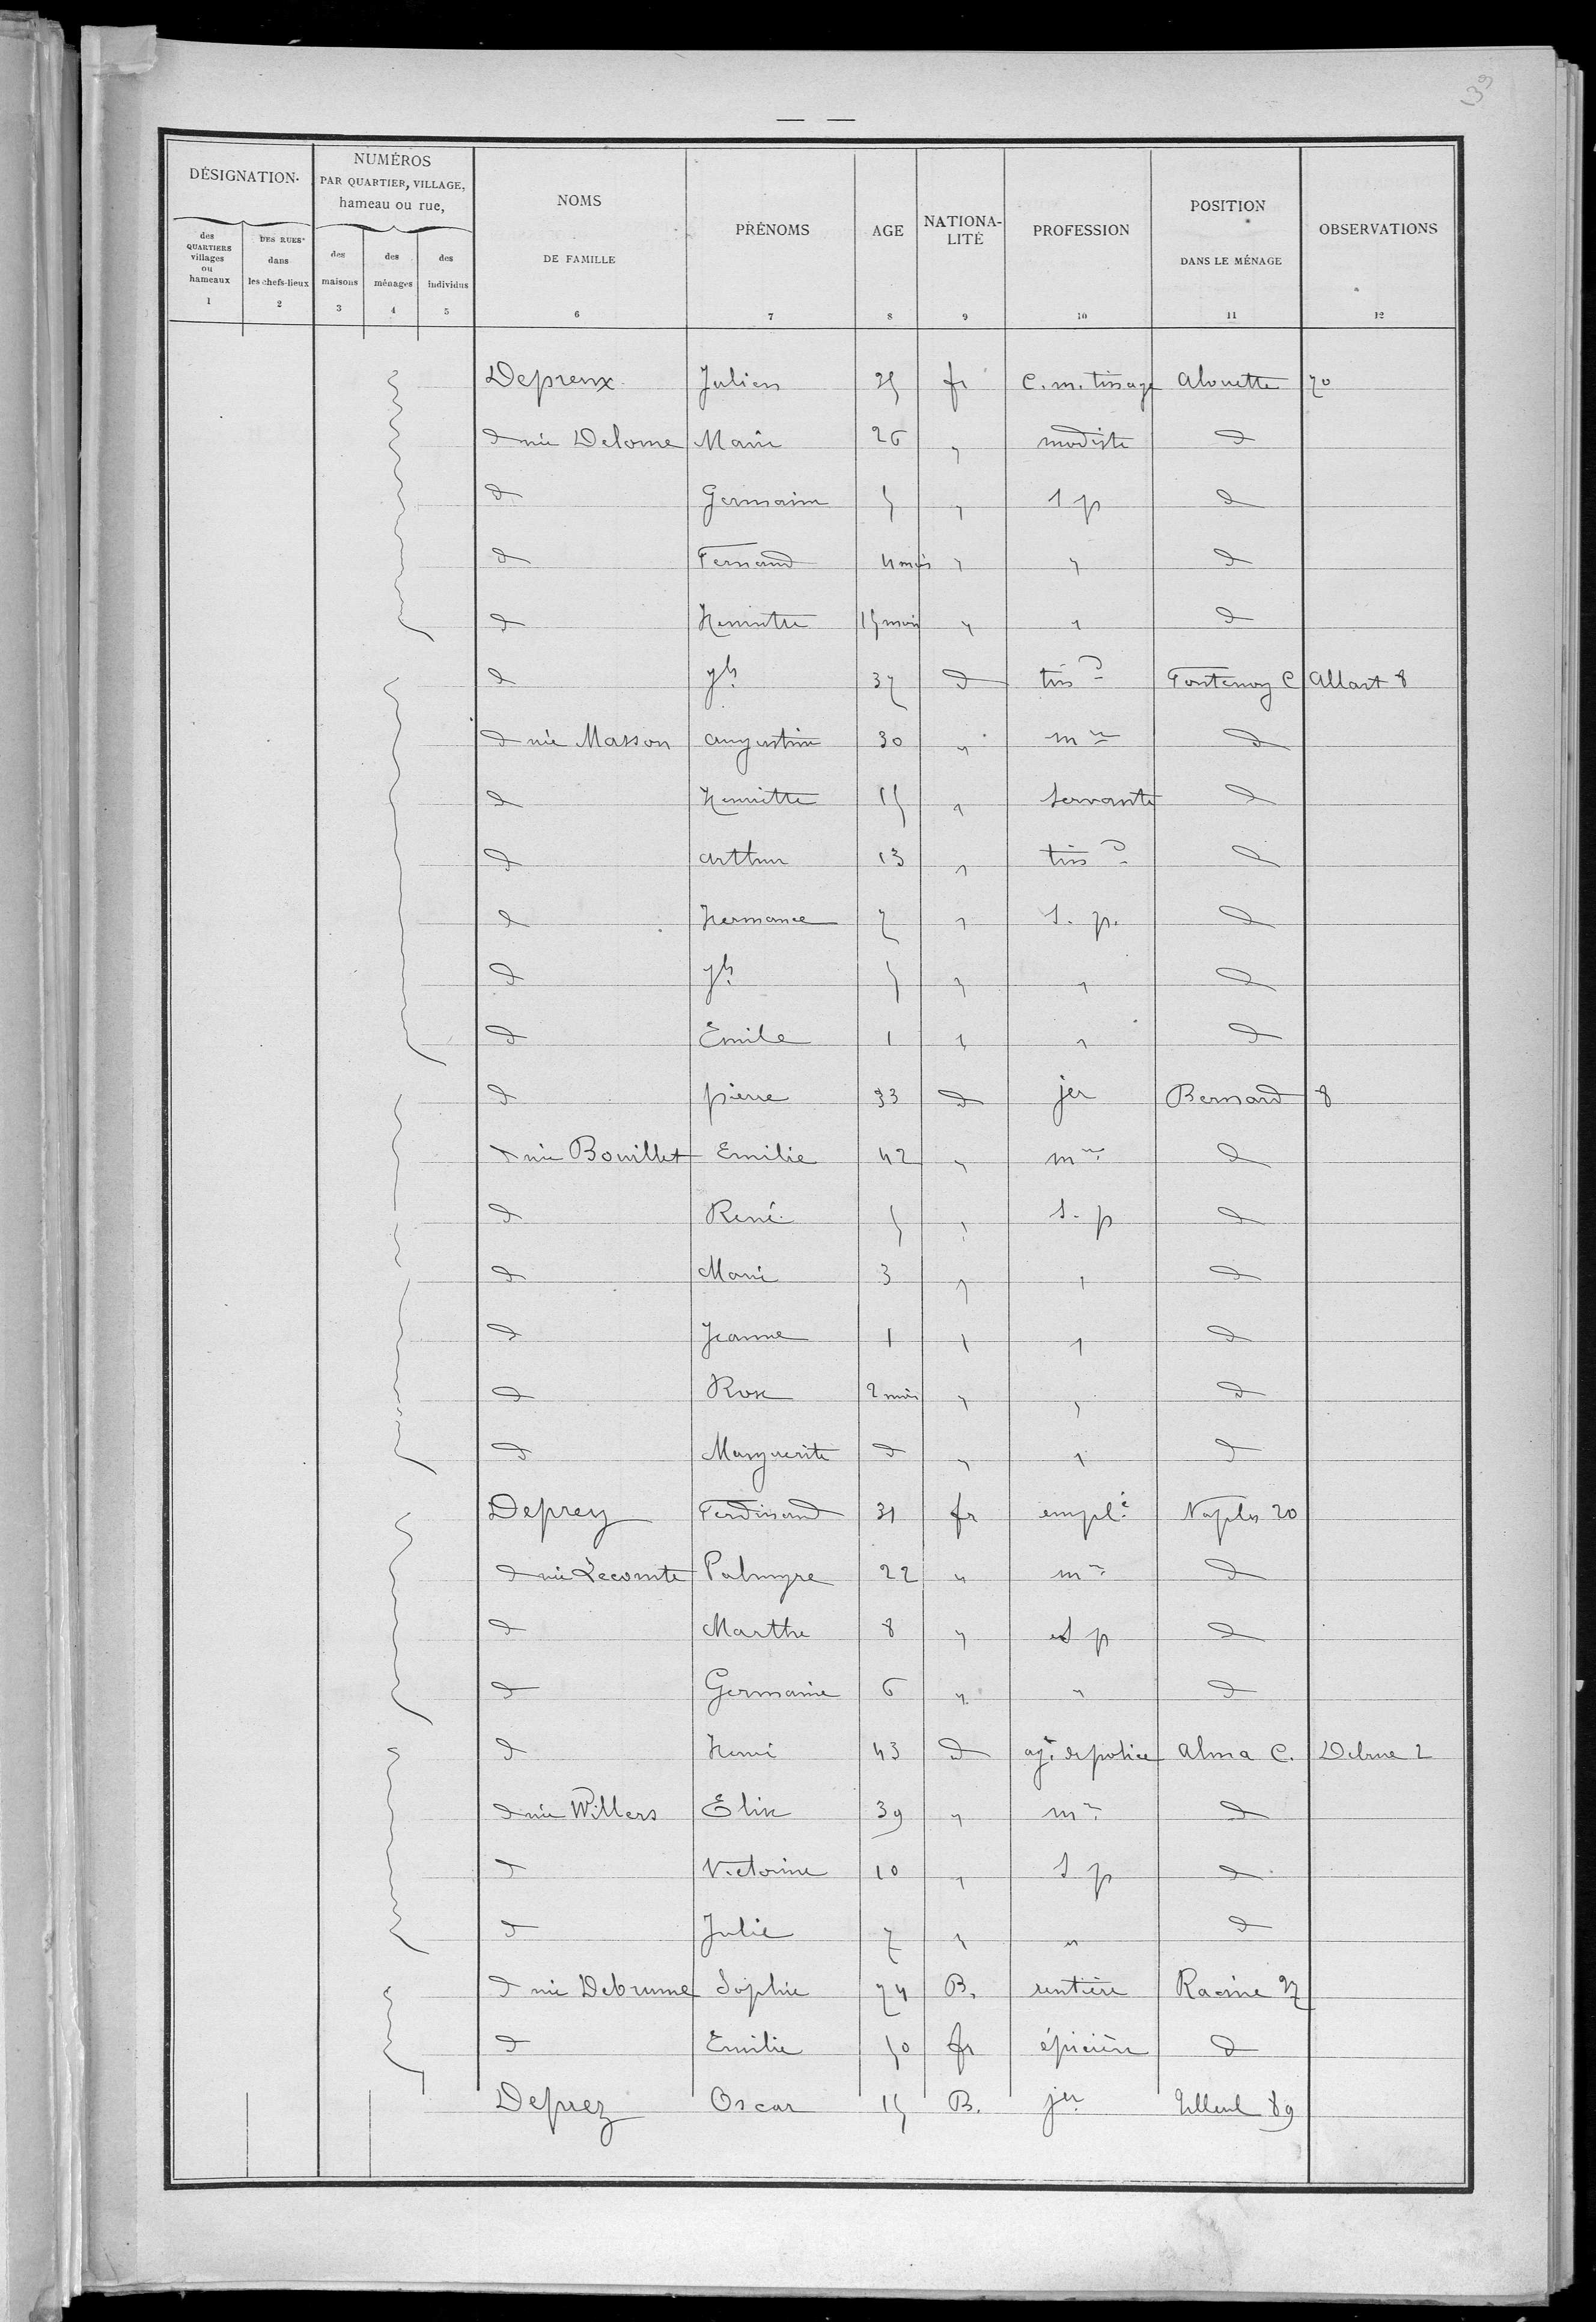 39
DÉSIGNATION.
NUMÉROS
PAR QUARTIER, VILLAGE,
hameau ou rue,
des QUARTIERS villages ou hameaux
DES RUES dans les chefs-lieux
des maisons
des ménages
des individus
NOMS
DE FAMILLE
PRÉNOMS
AGE
NATIONALITÉ
PROFESSION
POSITION
DANS LE MÉNAGE
OBSERVATIONS
1 2 3 4 5 6 7 8 9 10 11 12
Depreux Julien 25 fr C. m. tissage Alouette 70
d née Delome Marie 26 " modiste d
d Germaine 5 " s p d
d Fernand 4 mois " " d
d Henriette 15 mois " " d
d Jh 37 d tissd Fontenoy C Allart 8
d née Masson Augustine 30 " mre d
d Henriette 15 " servante d
d Arthur 13 " tissd d
d Hermance 7 " s. p. d
d Jh 5 " " d
d Émile 1 " " d
d pierre 33 d jer Bernard 8
d née Bouillet Emilie 42 " mre d
d René 5 " s. p d
d Marie 3 " " d
d Jeanne 1 " " d
d Rose 2 mois " " d
d Marguerite d " " d
Deprey Ferdinand 31 fr emplé Naples 20
d née Lecomte Palmyre 22 " mre d
d Marthe 8 " s p d
d Germaine 6 " " d
d Henri 43 d agt de police Alma C. Delrue 2
d née Willers Elise 39 " mre d
d Victorine 10 " s p d
d Julie 7 " " d
d née Debrume Sophie 74 B. rentière Racine 27
d Emilie 50 fr épicière d
Deprez Oscar 15 B. jer Tilleul 89